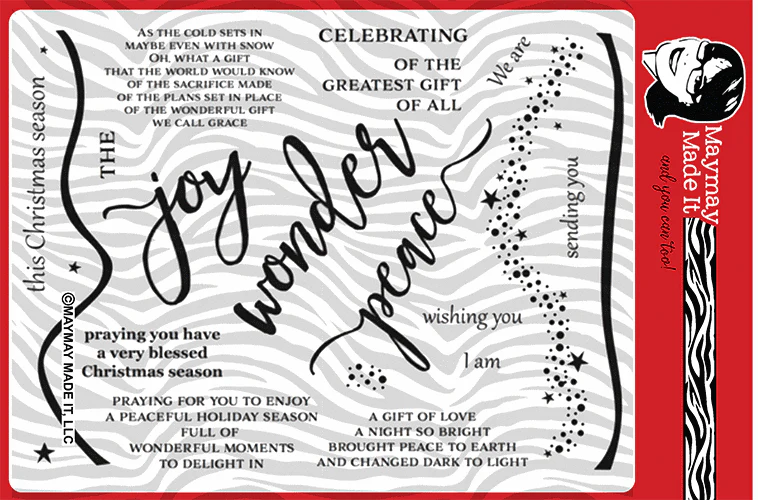 AS THE COLD SETS IN
MAYBE EVEN WITH SNOW
OH, WHAT A GIFT
THAT THE WORLD WOULD KNOW
OF THE SACRIFICE MADE
OF THE PLANS SET IN PLACE
OF THE WONDERFUL GIFT
WE CALL GRACE
CELEBRATING
OF THE
GREATEST GIFT
OF ALL
We are
this Christmas season
THE
joy
wonder
peace
sending you
wishing you
I am
praying you have
a very blessed
Christmas season
PRAYING FOR YOU TO ENJOY
A PEACEFUL HOLIDAY SEASON
FULL OF
WONDERFUL MOMENTS
TO DELIGHT IN
A GIFT OF LOVE
A NIGHT SO BRIGHT
BROUGHT PEACE TO EARTH
AND CHANGED DARK TO LIGHT
©MAYMAY MADE IT, LLC
Maymay
Made It
and you can too!